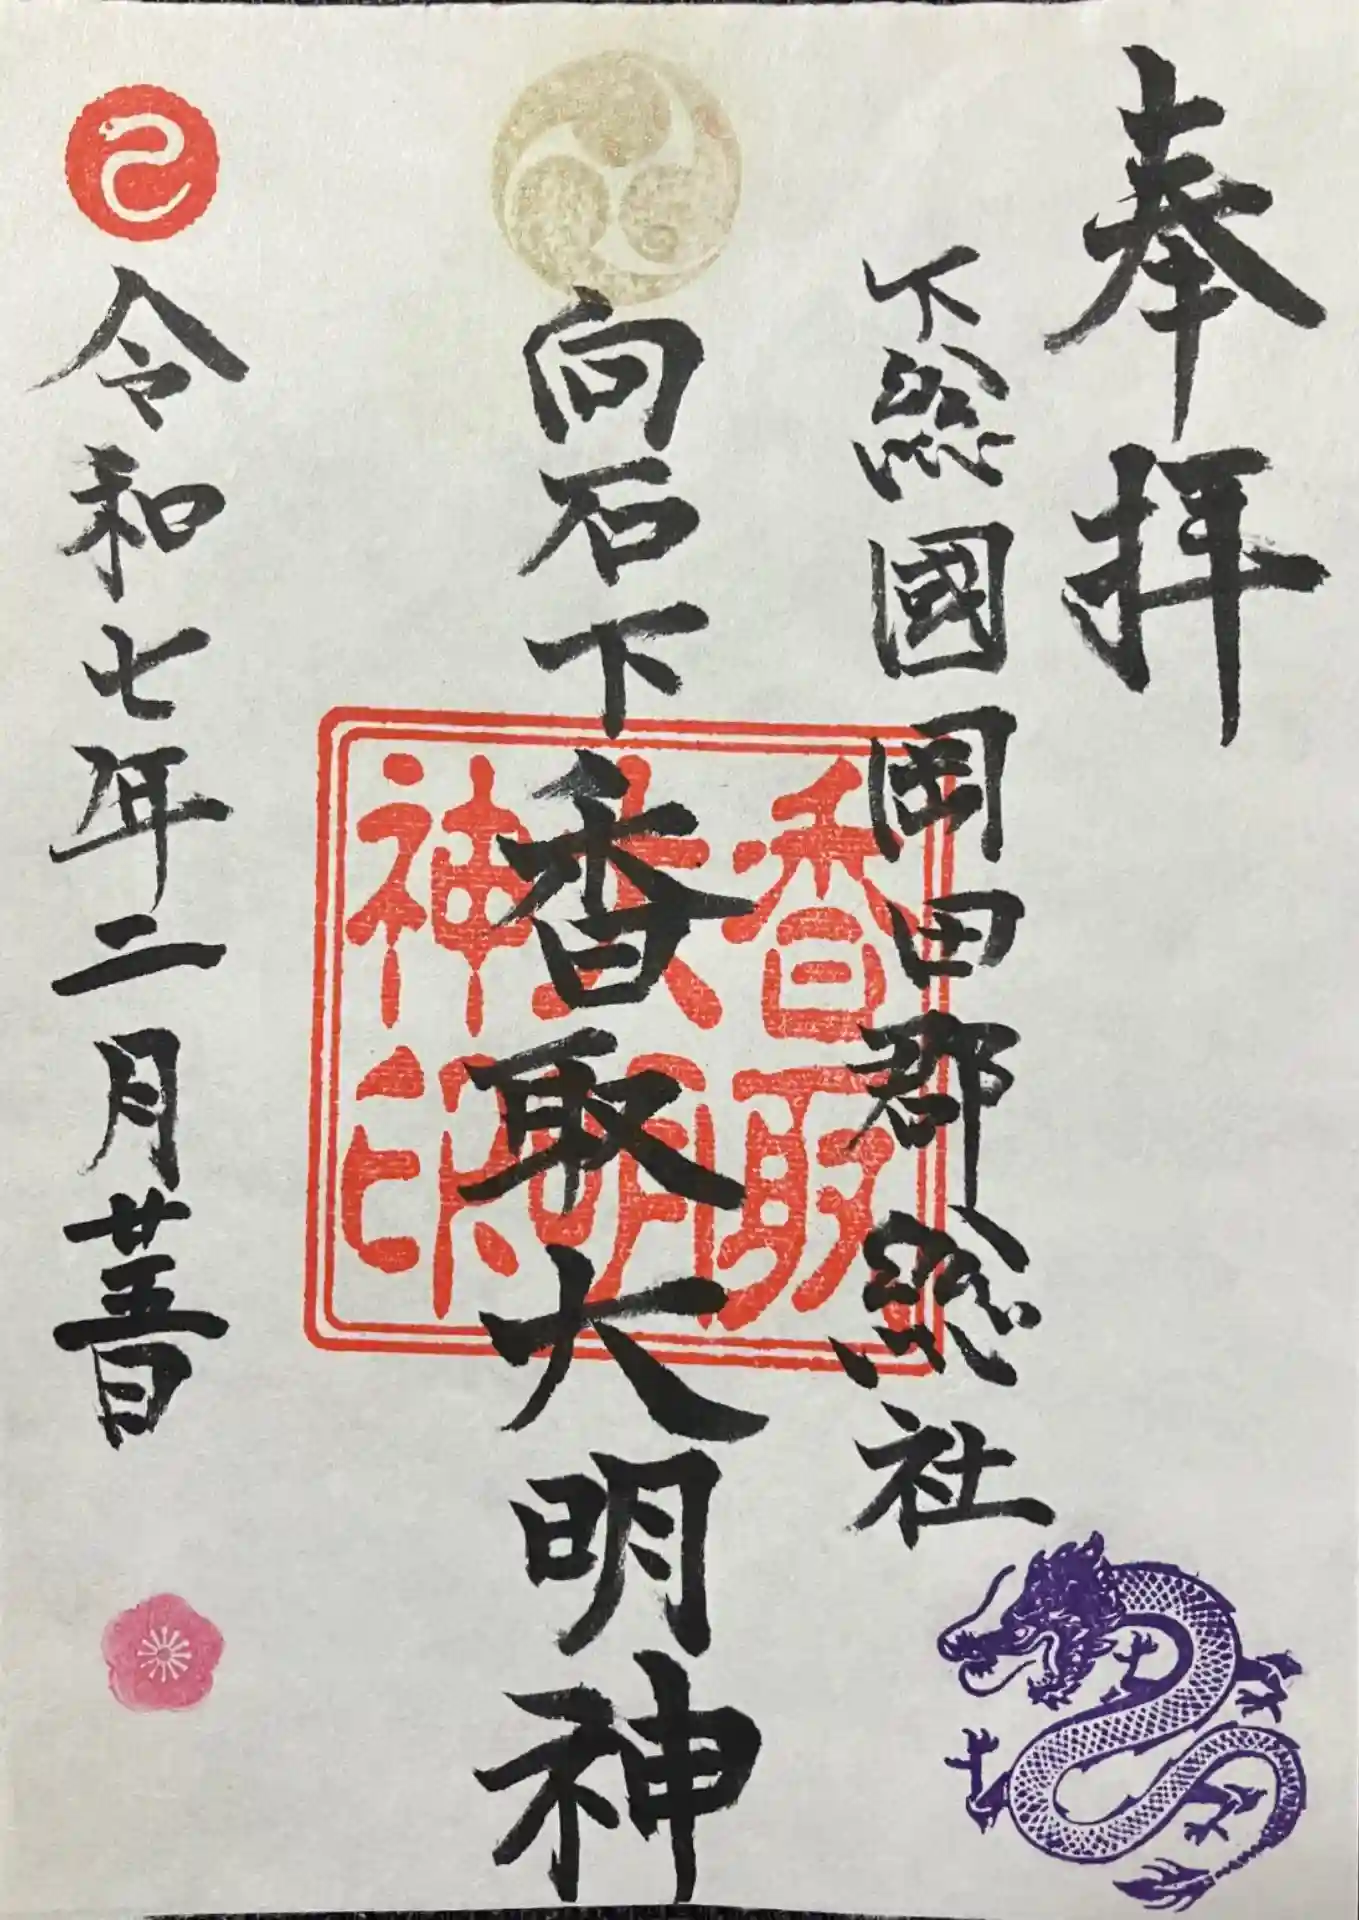 奉拝
下総國岡田郡総社
向石下香取大明神
香取
大明
神印
令和七年二月廿五日